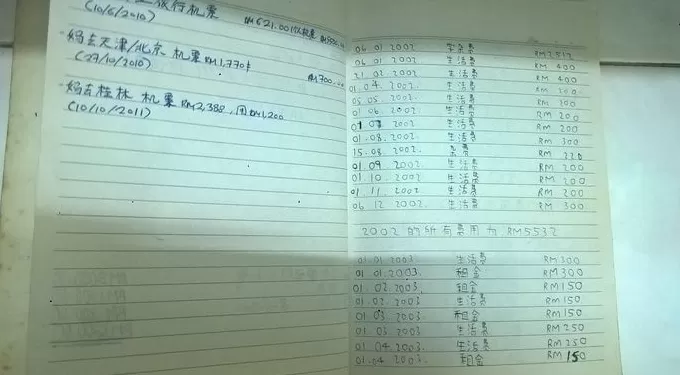 旅行机票 RM621.00
(10/6/2010)
妈去天津/北京 机票 RM1,770
(27/10/2010) RM700
妈去桂林 机票 RM2,388, 用RM1,200
(10/10/2011)
06 01 2002 RM2512
06 01 2002 生活费 RM 400
21 02 2002 生活费 RM 400
01.04.2002 生活费 RM 200
05.05.2002 生活费 RM 300
01 06 2002 生活费 RM 200
01 07 2002 生活费 RM 200
01.08.2002 生活费 RM 300
15.08.2002 RM 220
01.09.2002 生活费 RM 200
01.10.2002 生活费 RM 200
01.11.2002 生活费 RM 200
06 12 2002 生活费 RM 300
2002 的所有费用为 RM5532
01.01.2003 生活费 RM300
01 01.2003. 租金 RM300
01.02.2003 租金 RM150
01.02.2003 生活费 RM150
01.03.2003 租金 RM150
01 03 2003 生活费 RM250
01.04.2003 生活费 RM250
01.04.2003 租金 RM150